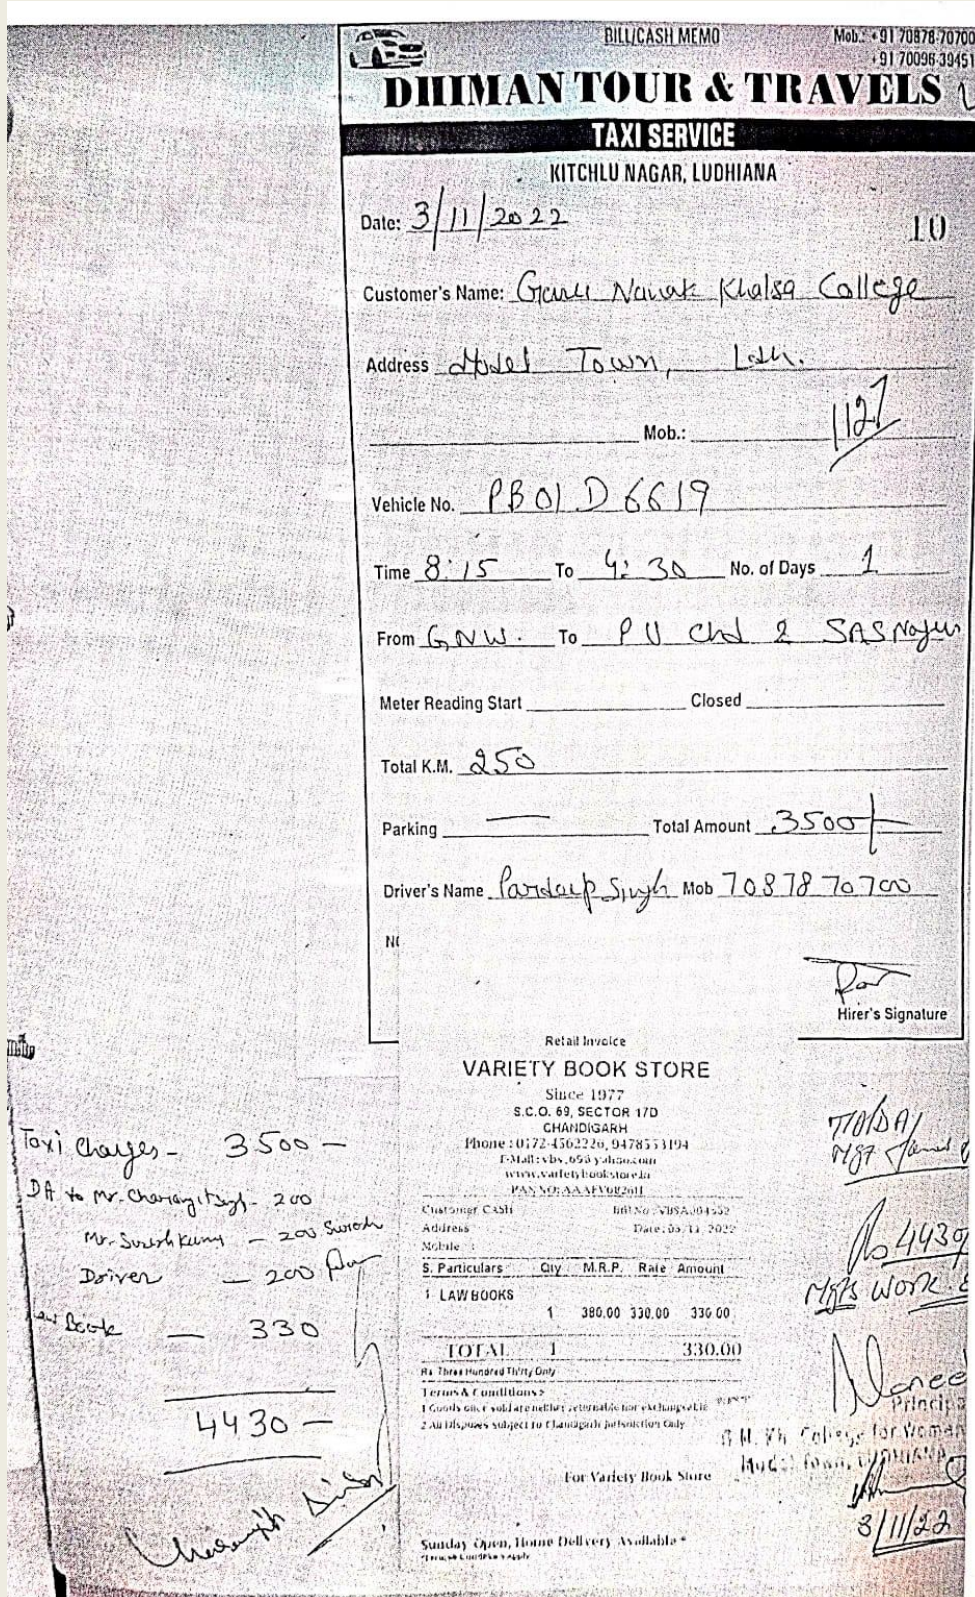 BILL/CASH MEMO
Mob.: +91 70878-70700
+91 70096-39451
DHIMAN TOUR & TRAVELS
TAXI SERVICE
KITCHLU NAGAR, LUDHIANA
Date: 3/11/2022
10
Customer's Name: Guru Nanak Khalsa College
Address Model Town, Ldh.
Mob.: 1127
Vehicle No. PB01 D 6619
Time 8:15 To 4:30 No. of Days 1
From G.N.W. To PU Chd & SAS Nagar
Meter Reading Start Closed
Total K.M. 250
Parking — Total Amount 3500/-
Driver's Name Pardeep Singh Mob 70878 70700
Hirer's Signature
Retail Invoice
VARIETY BOOK STORE
Since 1977
S.C.O. 69, SECTOR 17D
CHANDIGARH
Phone : 0172-4562226, 9478553194
www.varietybookstore.in
Customer CASH
Address
Mobile :
S. Particulars Qty M.R.P. Rate Amount
1 LAW BOOKS
1 380.00 330.00 330.00
TOTAL 1 330.00
Rs. Three Hundred Thirty Only
Terms & Conditions >
1 Goods once sold are neither returnable nor exchangeable
2 All Disputes subject to Chandigarh Jurisdiction Only
For Variety Book Store
Sunday Open, Home Delivery Available *
Taxi Charges - 3500 —
DA to Mr. Charanjit Singh - 200
Mr. Suresh Kumar — 200 Suresh
Driver — 200
Law Book — 330
4430 —
Charanjit Singh
TA/DA
Rs 4430
Work
Principal
G.N. Kh. College for Women
Model Town, LUDHIANA
3/11/22